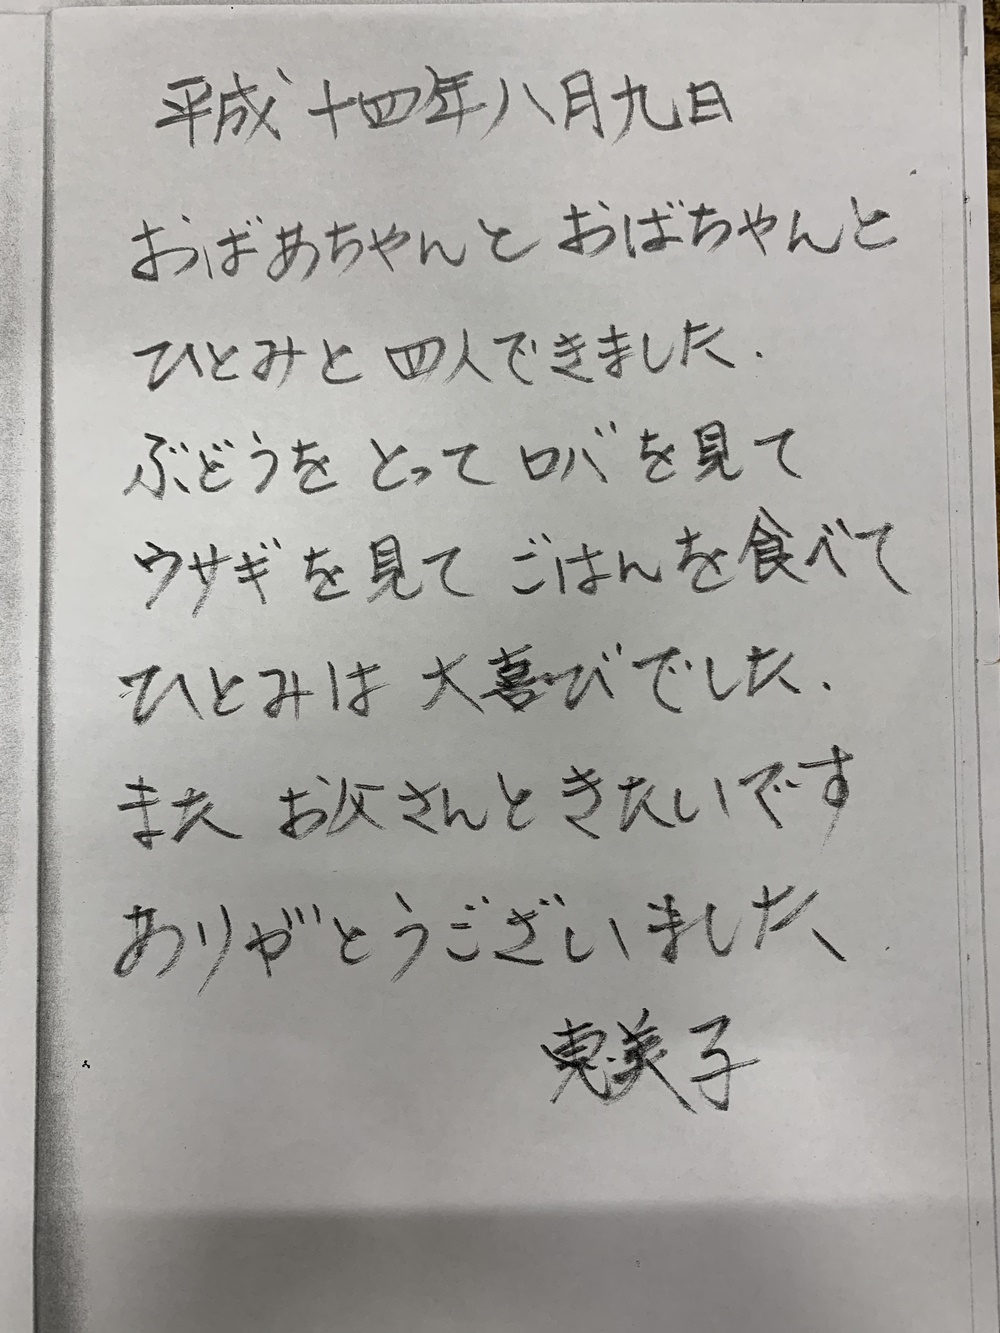 平成十四年八月九日
おばあちゃんと おばちゃんと
ひとみと 四人できました.
ぶどうを とって ロバを見て
ウサギを見て ごはんを食べて
ひとみは 大喜びでした.
また お父さんと きたいです
ありがとうございました、
恵美子